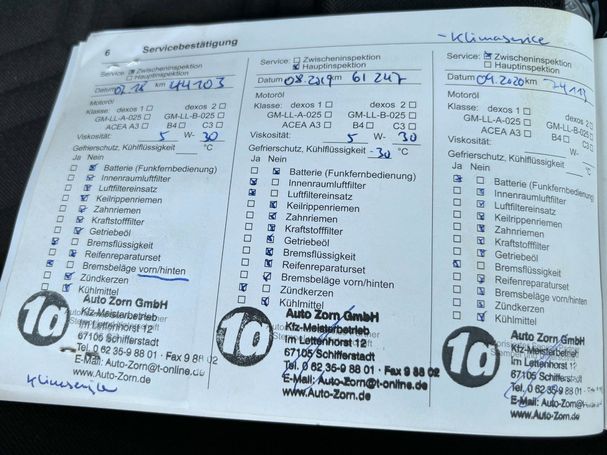 6 Servicebestätigung
Service: ☒ Zwischeninspektion
☐ Hauptinspektion
Datum km 44103
Motoröl
Klasse: dexos 1 ☐ dexos 2 ☐
GM-LL-A-025 ☐ GM-LL-B-025 ☐
ACEA A3 ☐ B4 ☐ C3 ☐
Viskosität: 5 W- 30
Gefrierschutz, Kühlflüssigkeit °C
Ja Nein
Batterie (Funkfernbedienung)
Innenraumluftfilter
Luftfiltereinsatz
Keilrippenriemen
Zahnriemen
Kraftstofffilter
Getriebeöl
Bremsflüssigkeit
Reifenreparaturset
Bremsbeläge vorn/hinten
Zündkerzen
Kühlmittel
1a Auto Zorn GmbH
Kfz-Meisterbetrieb
Im Lettenhorst 12
67105 Schifferstadt
Tel. 0 62 35-9 88 01 · Fax 9 88 02
E-Mail: Auto-Zorn@t-online.de
www.Auto-Zorn.de
Klimaservice
Service: ☐ Zwischeninspektion
☒ Hauptinspektion
Datum 08.2019 km 61 247
Motoröl
Klasse: dexos 1 ☐ dexos 2 ☐
GM-LL-A-025 ☐ GM-LL-B-025 ☐
ACEA A3 ☐ B4 ☐ C3 ☐
Viskosität: 5 W- 30
Gefrierschutz, Kühlflüssigkeit -30 °C
Ja Nein
Batterie (Funkfernbedienung)
Innenraumluftfilter
Luftfiltereinsatz
Keilrippenriemen
Zahnriemen
Kraftstofffilter
Getriebeöl
Bremsflüssigkeit
Reifenreparaturset
Bremsbeläge vorn/hinten
Zündkerzen
Kühlmittel
1a Auto Zorn GmbH
Kfz-Meisterbetrieb
Im Lettenhorst 12
67105 Schifferstadt
Tel. 0 62 35-9 88 01 · Fax 9 88 02
E-Mail: Auto-Zorn@t-online.de
www.Auto-Zorn.de
- Klimaservice
Service: ☒ Zwischeninspektion
☐ Hauptinspektion
Datum 09.2020 km
Motoröl
Klasse: dexos 1 ☐ dexos 2 ☐
GM-LL-A-025 ☐ GM-LL-B-025 ☐
ACEA A3 ☐ B4 ☐ C3 ☐
Viskosität: W-
Gefrierschutz, Kühlflüssigkeit °C
Ja Nein
Batterie (Funkfernbedienung)
Innenraumluftfilter
Luftfiltereinsatz
Keilrippenriemen
Zahnriemen
Kraftstofffilter
Getriebeöl
Bremsflüssigkeit
Reifenreparaturset
Bremsbeläge vorn/hinten
Zündkerzen
Kühlmittel
1a Auto Zorn GmbH
Kfz-Meisterbetrieb
Im Lettenhorst 12
67105 Schifferstadt
Tel. 0 62 35-9 88 01
E-Mail: Auto-Zorn@t-online.de
www.Auto-Zorn.de